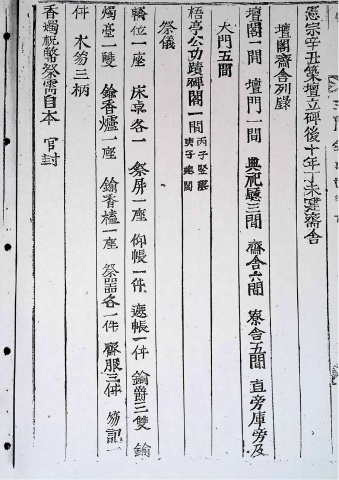 憲宗辛丑築壇立碑後十年丁未建齋舍
壇閣齋舍列錄
壇閣一間 壇門一間 典祀廳三間 齋舍六間 寮舍五間 直旁庫旁及
大門五間
梧亭公功蹟碑閣一間 丙子竪碑
庚子建閣
祭儀
轎位一座 床卓各一 祭屛一座 仰帳一件 遮帳一件 鍮爵三雙 鍮
燭臺一雙 鍮香爐一座 鍮香榼一座 祭器各一件 齋服三件 笏記一
件 木笏三柄
香燭祝幣祭需自本 官封